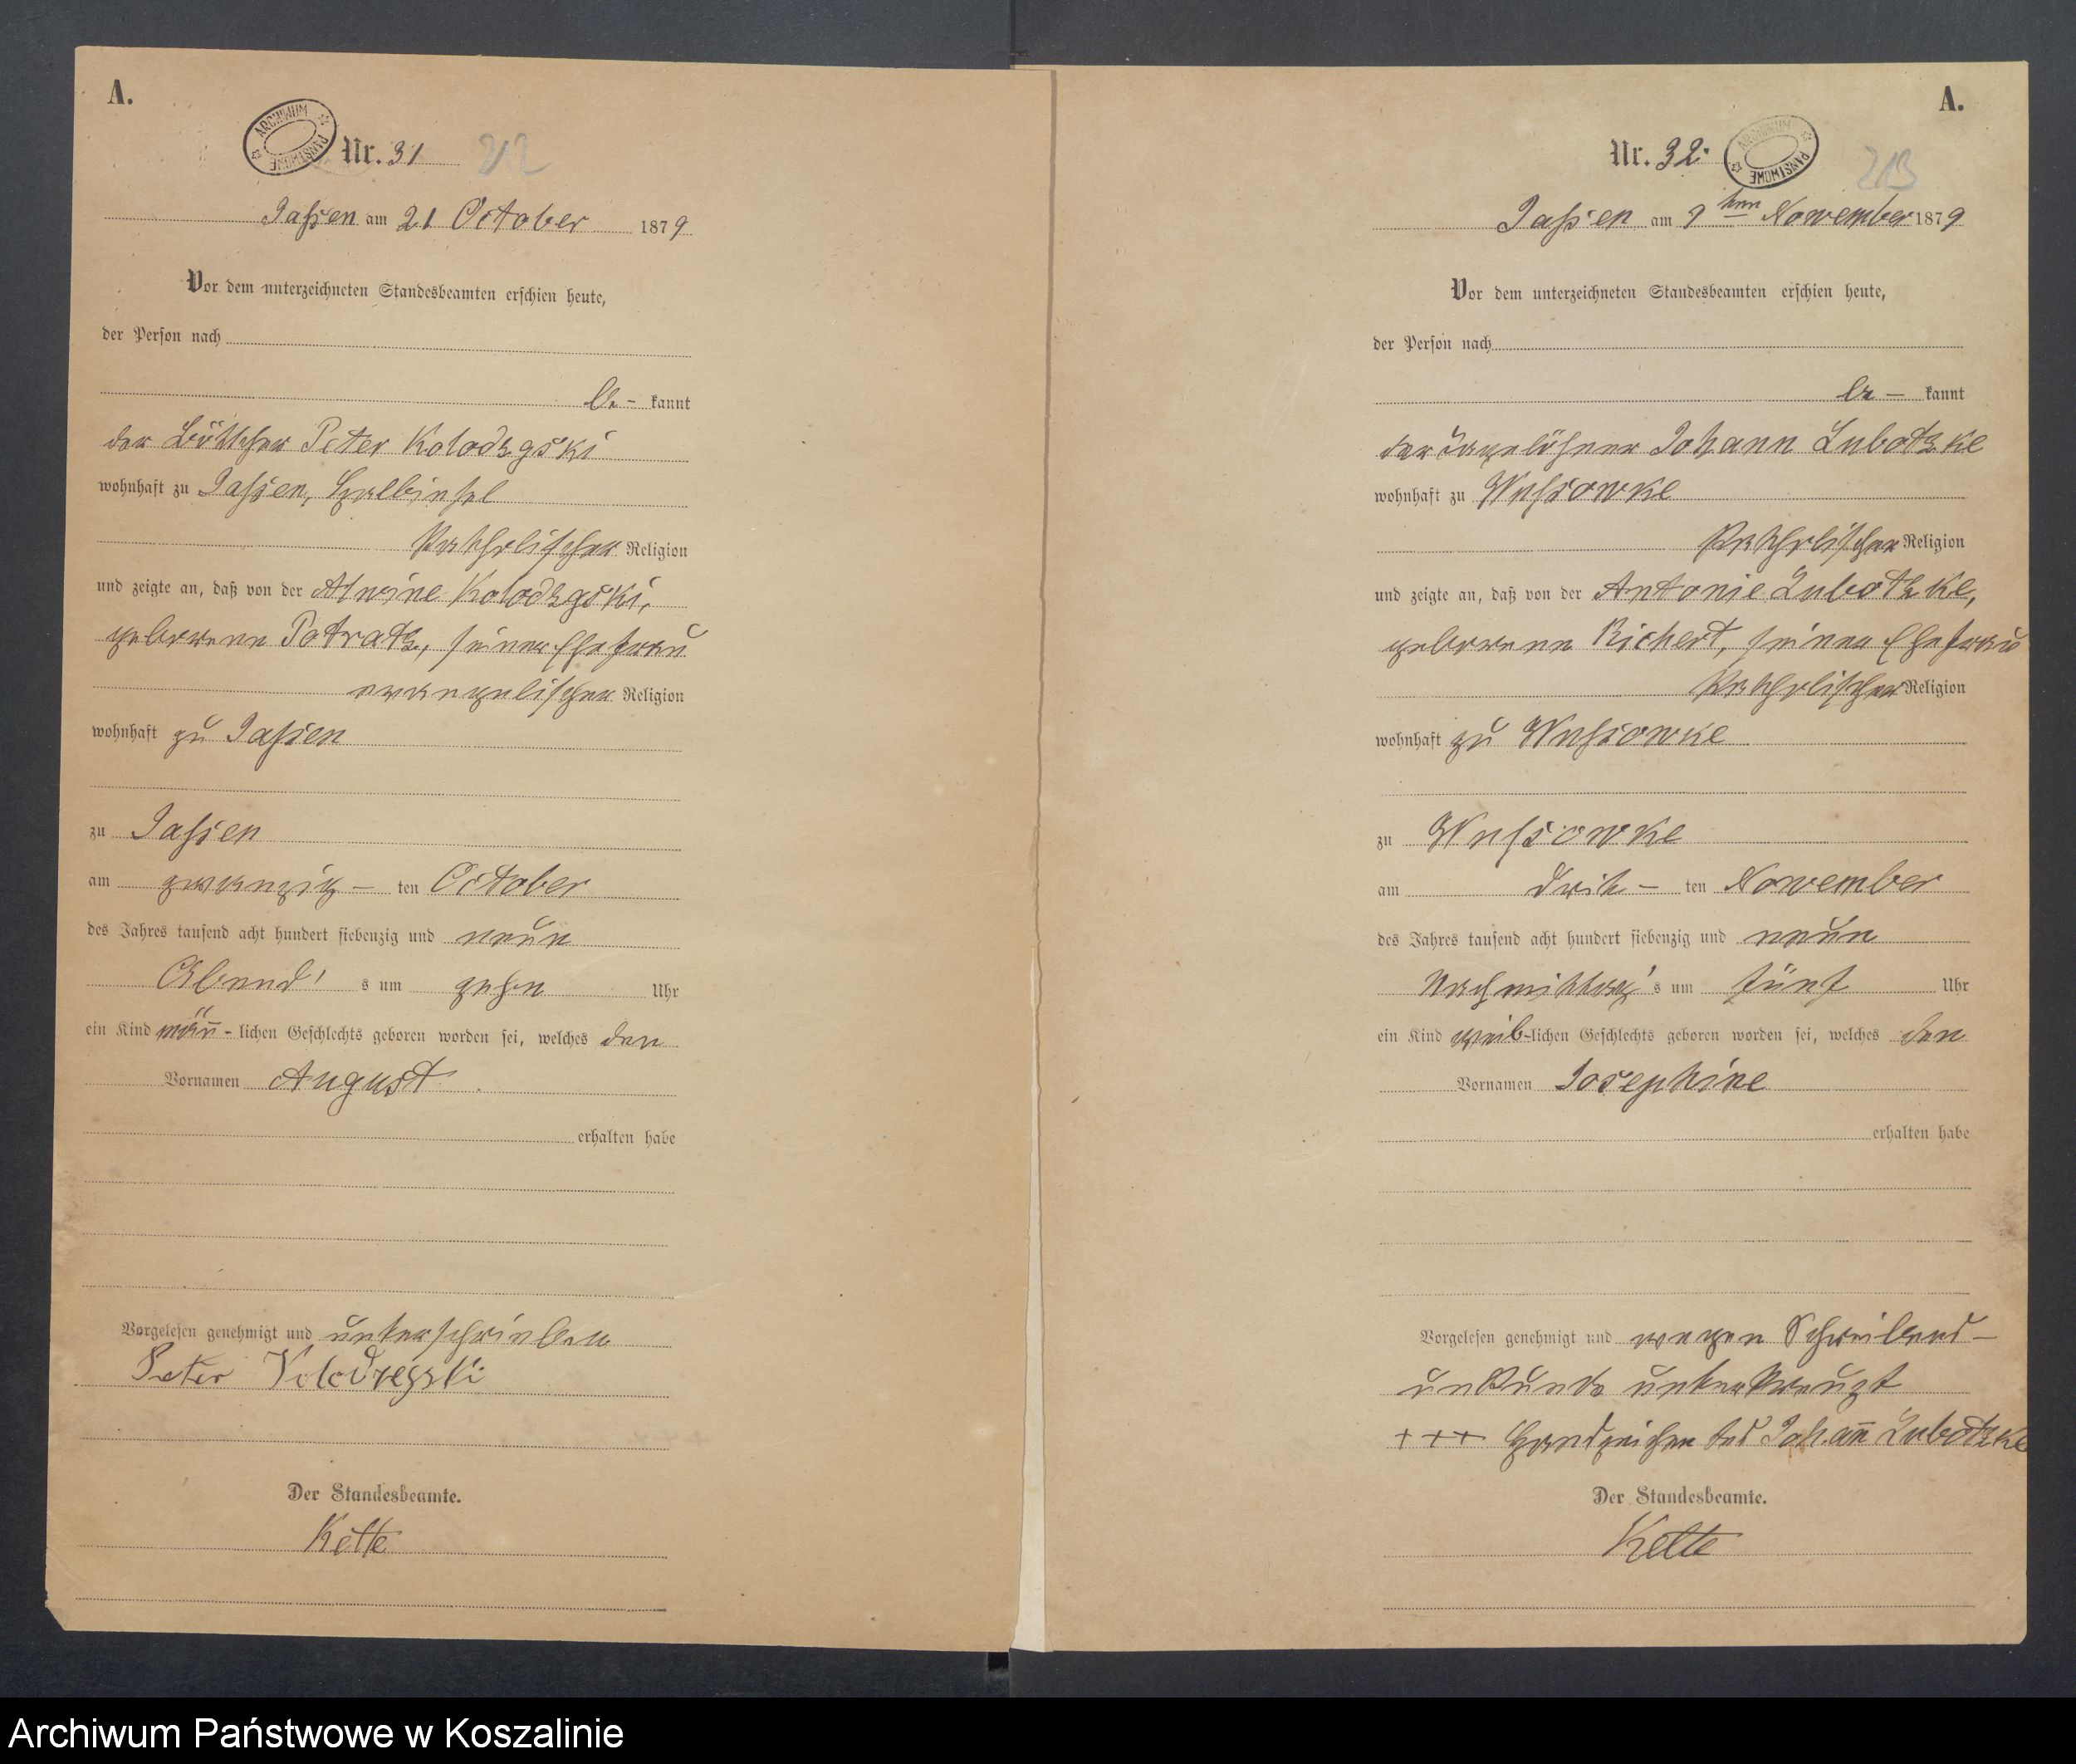 A.
ARCHIWUM PAŃSTWOWE
Nr. 31 212
Jassen am 21 October 1879
Vor dem unterzeichneten Standesbeamten erschien heute,
der Person nach
be- kannt
der Böttcher Peter Kolodzgski
wohnhaft zu Jassen, Halbinsel
katholischer Religion
und zeigte an, daß von der Alwine Kolodzgski,
geborenen Potratz, seiner Ehefrau
evangelischer Religion
wohnhaft zu Jassen
zu Jassen
am zwanzig- ten October
des Jahres tausend acht hundert siebenzig und neun
Abend's um zehn Uhr
ein Kind män̄-lichen Geschlechts geboren worden sei, welches den
Vornamen August
erhalten habe
Vorgelesen genehmigt und unterschrieben
Peter
Der Standesbeamte.
Kette
A.
Nr. 32. ARCHIWUM PAŃSTWOWE 213
Jassen am November 1879
Vor dem unterzeichneten Standesbeamten erschien heute,
der Person nach
be- kannt
der Tagelöhner Johann Lubotzke
wohnhaft zu Wussowke
katholischer Religion
und zeigte an, daß von der Antonie Lubotzke,
geborenen Richert, seiner Ehefrau
katholischer Religion
wohnhaft zu Wussowke
zu Wussowke
am drit- ten November
des Jahres tausend acht hundert siebenzig und neun
Nachmittag's um fünf Uhr
ein Kind weib-lichen Geschlechts geboren worden sei, welches den
Vornamen Josephine
erhalten habe
Vorgelesen genehmigt und wegen Schreibens-
unkunde unterkreuzt
+++ Handzeichen des Johan̄ Lubotzke
Der Standesbeamte.
Kette
Archiwum Państwowe w Koszalinie